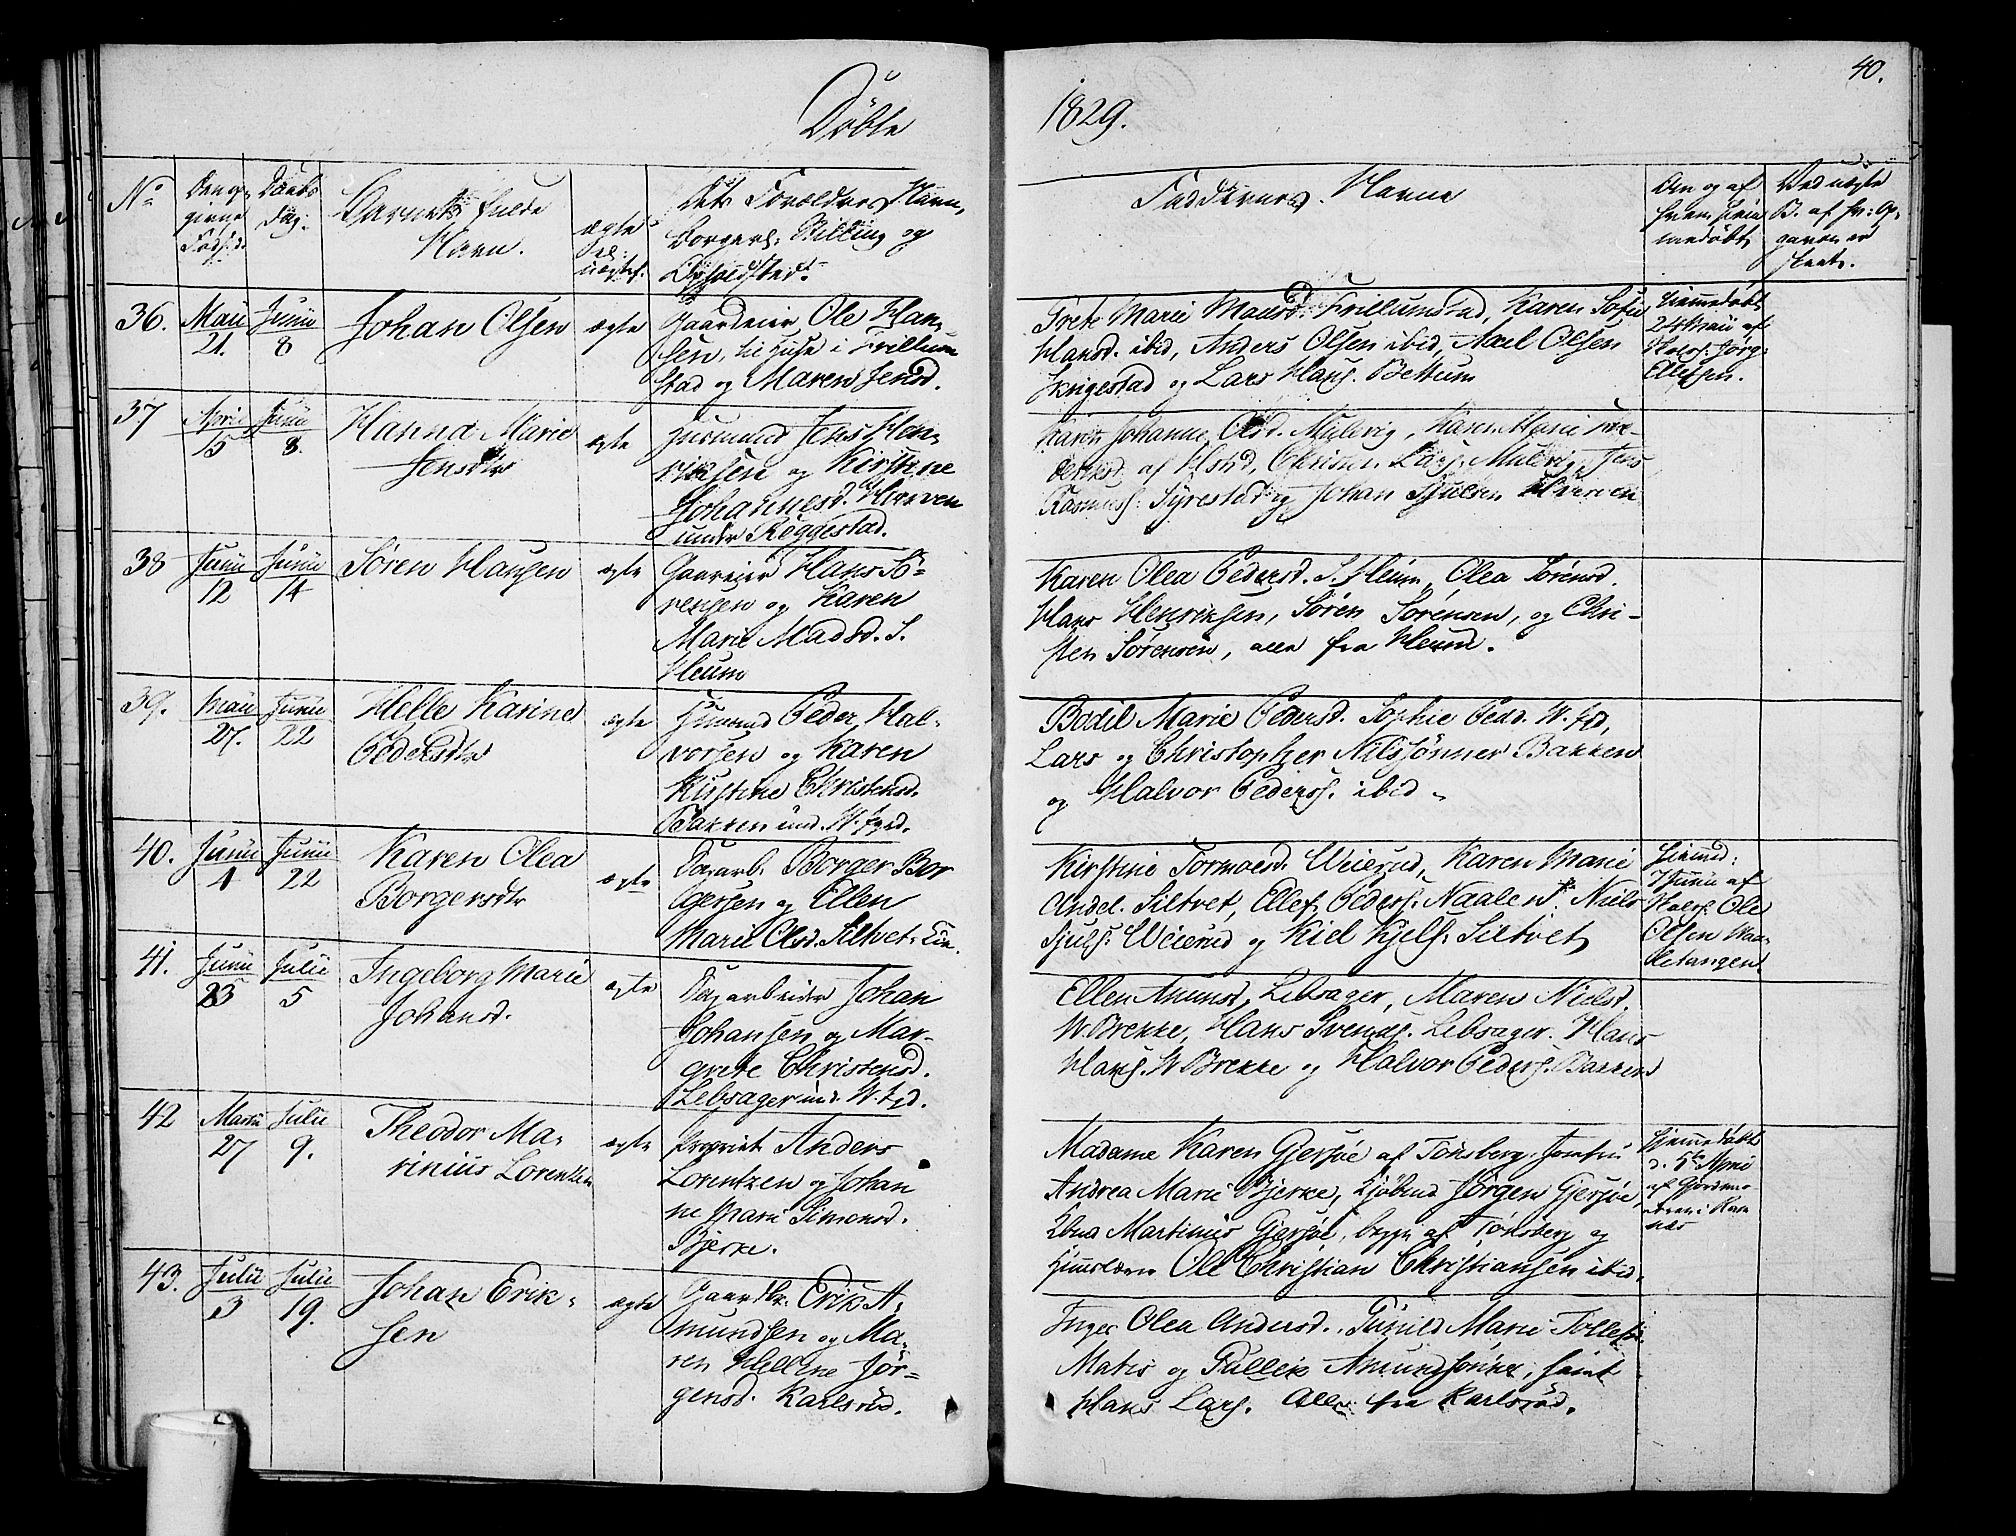 Döbte
1829.
40.
No
Den op-
givne
Fødsd.
Daabs
Dag.
Barnets fulde
Navn.
ægte
el.
uægte.
Det's Forældres Navn,
Borgerl. Stilling og
Opholdsted.
Faddernes Navne
Om og af
hvem hjem
medøbt
Ved uægte
B. af hv: Op-
gaven er
skeet.
36.
Maii
21.
Junii
8
Johan Olsen
ægte
Gaardeier Ole Han-
sen, til Huse i Trillum-
stad og Maren Jensd.
Grete Marie Madsd. Trillumstad, Karen Sofie
Hansd. ibid, Anders Olsen ibid, Axel Olsen
og Lars Hans. Bettum
Hjemmedøbt
24 Maii af
Jørg.
Ellefsen.
37
April
15
Junii
8.
Hanna Marie
Jensdtr
ægte
Husmand Jens Hen-
riksen og Kirstine
Johannesd. Hverven
under Røggestad.
Karen Johanne Olsd. Mulvig, Karen Marie
af Christen Lars. Mulvig, Jens
Rasmuss. Syrestad og Johan Hverven
38
Junii
12
Junii
14
Søren Hansen
ægte
Gaardeier Hans Sö-
rensen og Karen
Marie Madsd. S.
Heum
Karen Olea Pedersd. S. Heum, Olea Sørensd.
Hans Henriksen, Søren Sørensen, og Chri-
sten Sørensen, alle fra Heum.
39.
Maii
27.
Junii
22
Helle Karine
Pedersdtr
ægte
Husmand Peder Hal-
vorsen og Karen
Kirstine Christensd.
Bakken und. W. Fyd.
Bodil Marie Pedersd. Sophie Pedd. W. Fyd,
Lars og Christopher Nilssønner Bakken
og Halvor Peders. ibid.
40.
Junii
1
Junii
22
Karen Olea
Borgersdtr
ægte
Dagarb. Borger Bor
gersen og Ellen
Marie Olsd. Siltvet
Kirstine Tormoesd. Weierud, Karen Marie
Andd. Siltvet, Ellef Peders. Naalen, Niels
Sjuls. Weierud og Kiel Kjels. Siltvet
Hjemmd:
7 Junii af
Ole
Olsen Naa-
letangen.
41.
Junii
23
Julii
5
Ingeborg Marie
Johansd.
ægte
Dagarbeider Johan
Johansen og Mar-
grete Christensd.
Lebsager und. W. Fyd.
Ellen Amunsd. Lebsager, Maren Nielsd.
W. Brekke, Hans Svends. Lebsager. Hans
Hans. W Brekke og Halvor Peders. Bakken
42
Martii
27
Julii
9.
Theodor Ma-
rinius Lorentzen
ægte
Propriet Anders
Lorentzen og Johan
ne Marie Simensd.
Bjerke.
Madame Karen Gjersøe af Tønsberg, Jomfru
Andrea Marie Bjerke, Kjøbmd Jørgen Gjersøe,
Kbmd Martinus Gjersøe, begge af Tønsberg og
Ole Christian Christiansen ibid.
Hjemmedøbt
d. 5te April
af Gjordmo-
deren i Ram
nes
43.
Julii
3
Julii
19.
Johan Erik-
sen
ægte
Gaardbr. Erik A-
mundsen og Ma-
ren Helene Jør-
gensd. Karlsrud.
Inger Olea Andersd., Gunild Marie Tollefsd.
Matis og Gullik Amundsønner, samt
Hans Lars. Alle fra Karlsrud.